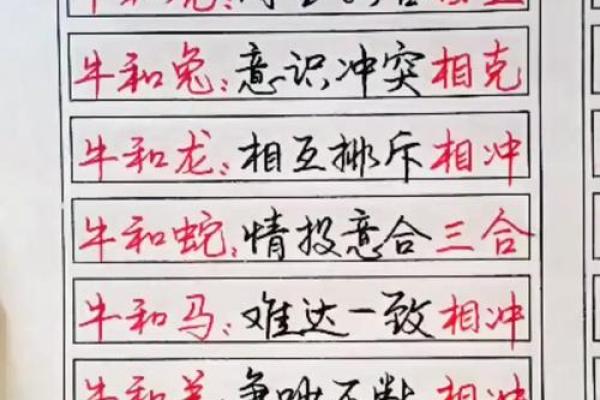 牛和兔:意识冲突相克
牛和龙:相互排斥相冲
牛和蛇:情投意合三合
牛和马:难达一致相冲
牛和羊:争吵不断相冲